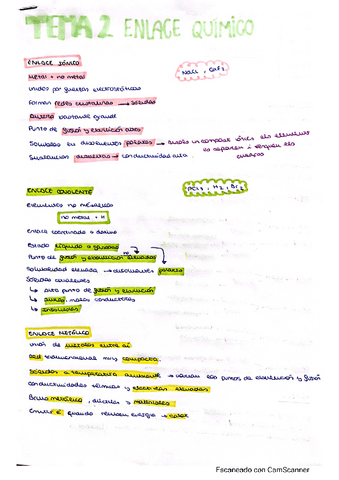 TEMA 2 ENLACE QUÍMICO
ENLACE IÓNICO
Metal + no metal
NaCl, CaF₂
Unidos por fuerzas electrostáticas
Forman redes cristalinas → sólidos
Dureza bastante grande
Punto de fusión y ebullición altos
Solubles en disolventes polares →
los elementos
se separan y rompen el
→ conductividad alta
ENLACE COVALENTE
PCl₃, H₂, Br₂
elementos no metálicos
no metal + H
Enlace coordinado o dativo
Estado líquido o gaseoso
Punto de fusión y ebullición
Solubilidad elevada → disolventes
Sólidos covalentes
↳ alto punto de fusión y ebullición
↳ duros, malos conductores
↳ insolubles
ENLACE METÁLICO
unión de metales entre sí
red tridimensional muy compacta
Sólidos a temperatura ambiente → varían sus puntos de ebullición y fusión
conductividades térmicas y eléctricas elevadas
Brillo metálico, dúctiles y maleables
Emiten e⁻ cuando reciben energía → calor
Escaneado con CamScanner